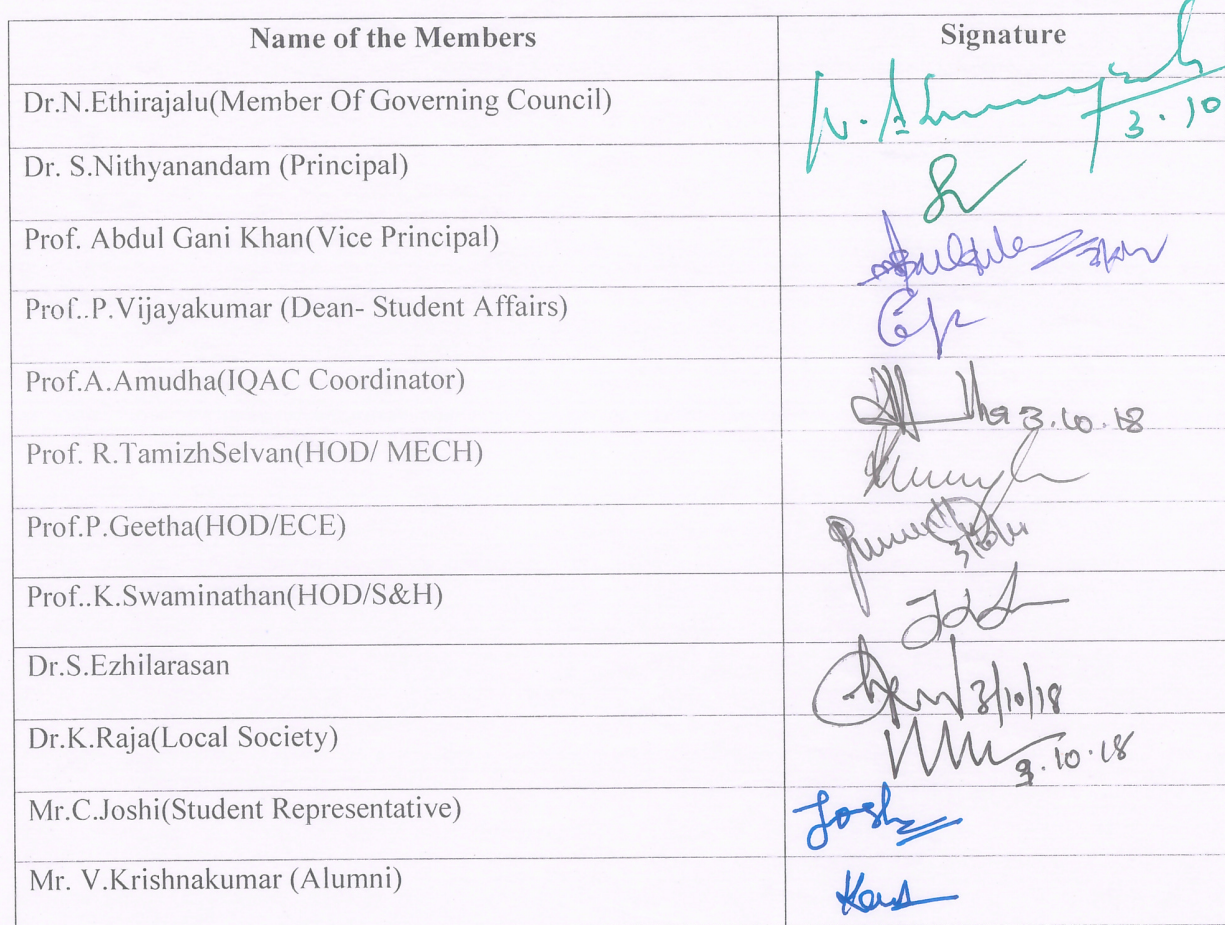 Name of the Members Signature
Dr.N.Ethirajalu(Member Of Governing Council) 3.10
Dr. S.Nithyanandam (Principal)
Prof. Abdul Gani Khan(Vice Principal)
Prof..P.Vijayakumar (Dean- Student Affairs)
Prof.A.Amudha(IQAC Coordinator) 3.10.18
Prof. R.TamizhSelvan(HOD/ MECH)
Prof.P.Geetha(HOD/ECE)
Prof..K.Swaminathan(HOD/S&H)
Dr.S.Ezhilarasan 3/10/18
Dr.K.Raja(Local Society) 3.10.18
Mr.C.Joshi(Student Representative) Joshi
Mr. V.Krishnakumar (Alumni)